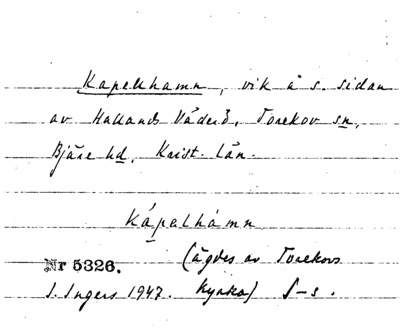 Kapelhamn, vik å s. sidan
av Hallands Väderö, Torekov sn,
Bjäre hd, Krist. län.
Kápelhàmn
(ägdes av Torekovs
Nr 5326.
I. Ingers 1947. kyrka) S-s.